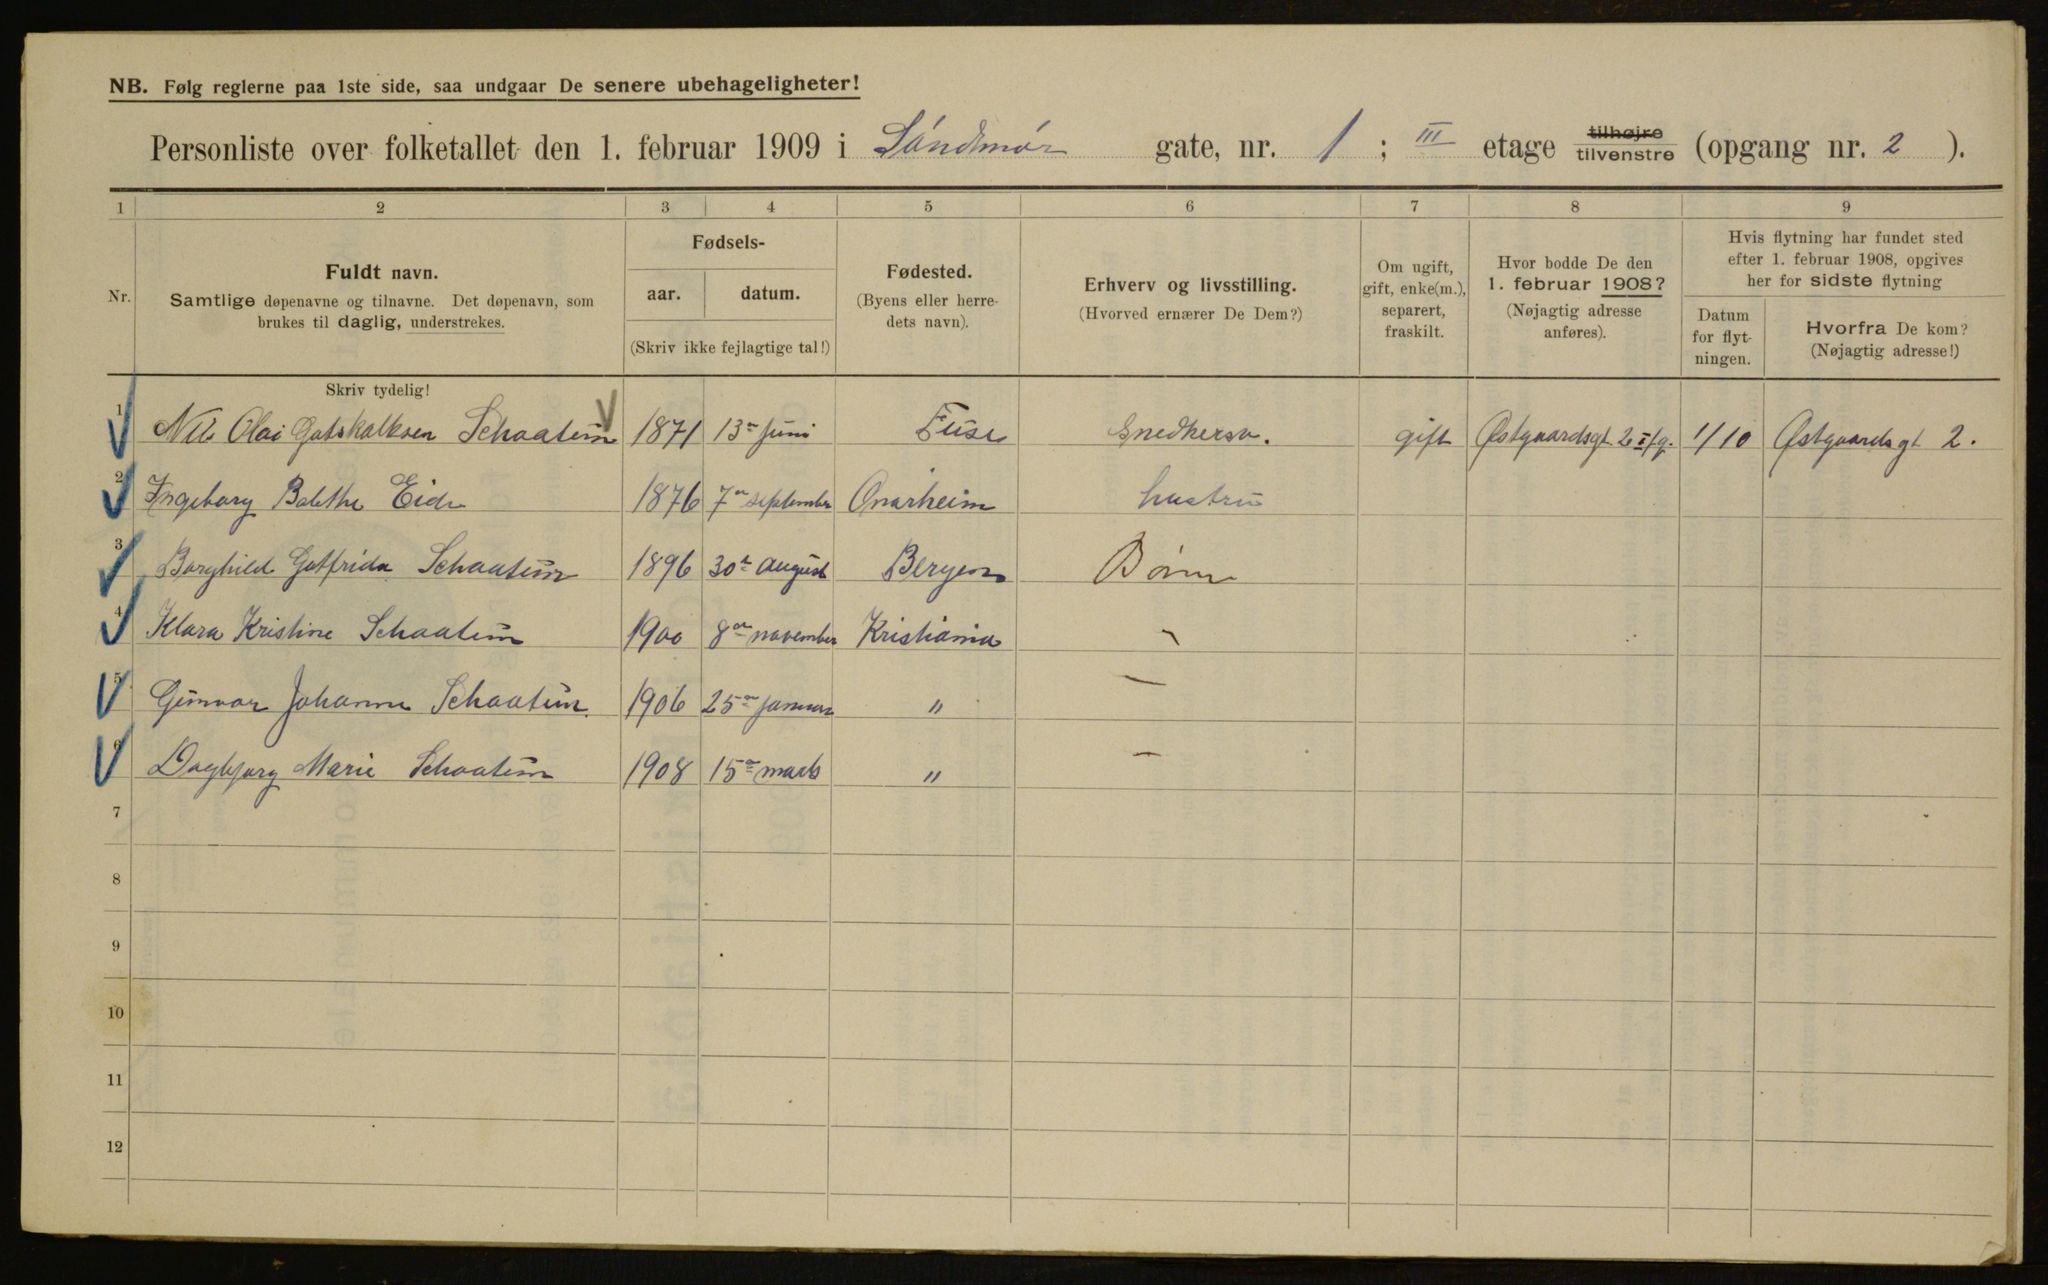 NB. Følg reglerne paa 1ste side, saa undgaar De senere ubehageligheter!
Personliste over folketallet den 1. februar 1909 i Søndmør gate, nr. 1 ; III etage tilhøjre tilvenstre (opgang nr. 2 ).
1 2 3 4 5 6 7 8 9
Nr.
Fuldt navn.
Samtlige døpenavne og tilnavne. Det døpenavn, som
brukes til daglig, understrekes.
Fødsels-
aar. datum.
(Skriv ikke fejlagtige tal!)
Fødested.
(Byens eller herre-
dets navn).
Erhverv og livsstilling.
(Hvorved ernærer De Dem?)
Om ugift,
gift, enke(m.),
separert,
fraskilt.
Hvor bodde De den
1. februar 1908?
(Nøjagtig adresse
anføres).
Hvis flytning har fundet sted
efter 1. februar 1908, opgives
her for sidste flytning
Datum
for flyt-
ningen.
Hvorfra De kom?
(Nøjagtig adresse!)
Skriv tydelig!
1 Nils Olai Gotskalksen Schaatun 1871 13de juni Fuse Snedkersv. gift Østgaardsgt. 2 II 1/10 Østgaardsgt 2.
2 Ingeborg Bolethe Eide 1876 7de september Onarheim hustru
3 Borghild Gotfrida Schaatun 1896 30te august Bergen Børn
4 Klara Kristine Schaatun 1900 8de november Kristiania "
5 Gunvor Johanne Schaatun. 1906 25de januar " —
6 Dagbjørg Marie Schaatun 1908 15de marts " —
7
8
9
10
11
12